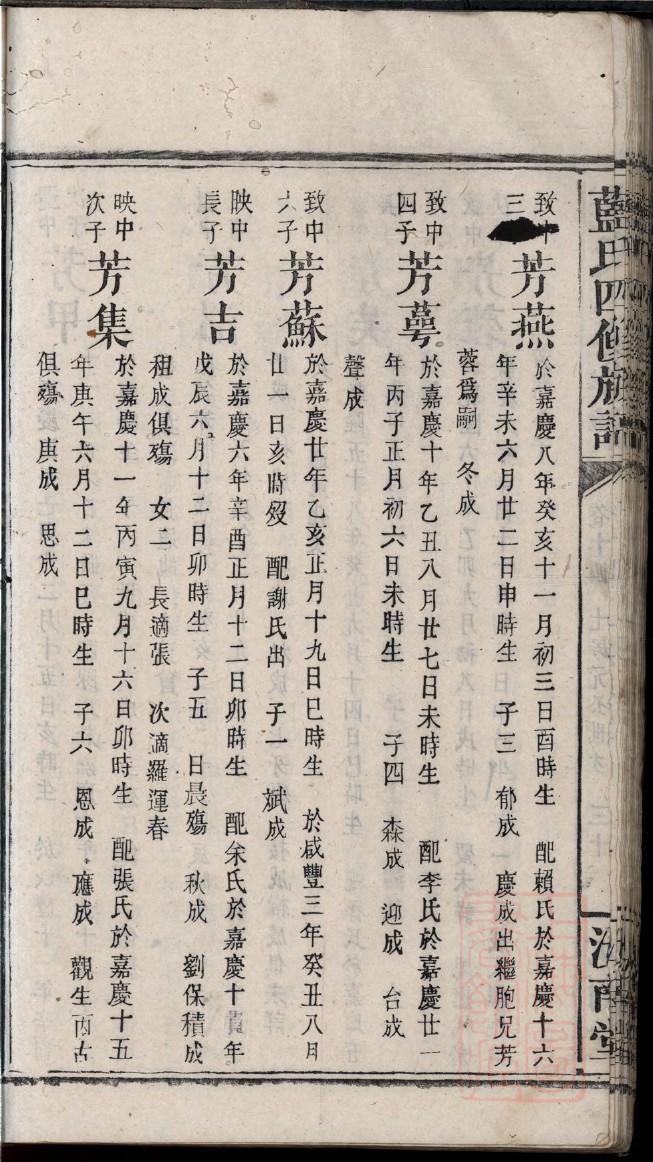 藍氏四修族譜
汝南堂
致中三
芳燕
於嘉慶八年癸亥十一月初三日酉時生 配賴氏於嘉慶十六
年辛未六月廿二日申時生 子三 郁成 慶成出繼胞兄芳
蓉爲嗣 冬成
致中四子
芳萼
於嘉慶十年乙丑八月廿七日未時生 配李氏於嘉慶廿一
年丙子正月初六日未時生 子四 森成 迎成 台成
聲成
致中六子
芳蘇
於嘉慶廿年乙亥正月十九日巳時生 於咸豐三年癸丑八月
廿一日亥時歿 配謝氏出 子一 斌成
映中長子
芳吉
於嘉慶六年辛酉正月十二日卯時生 配余氏於嘉慶十貳年
戊辰六月十二日卯時生 子五 日晨殤 秋成 劉保積成
祖成俱殤 女二 長適張 次適羅運春
映中次子
芳集
於嘉慶十一年丙寅九月十六日卯時生 配張氏於嘉慶十五
年庚午六月十二日巳時生 子六 恩成 應成 觀生丙古
俱殤 庚成 思成